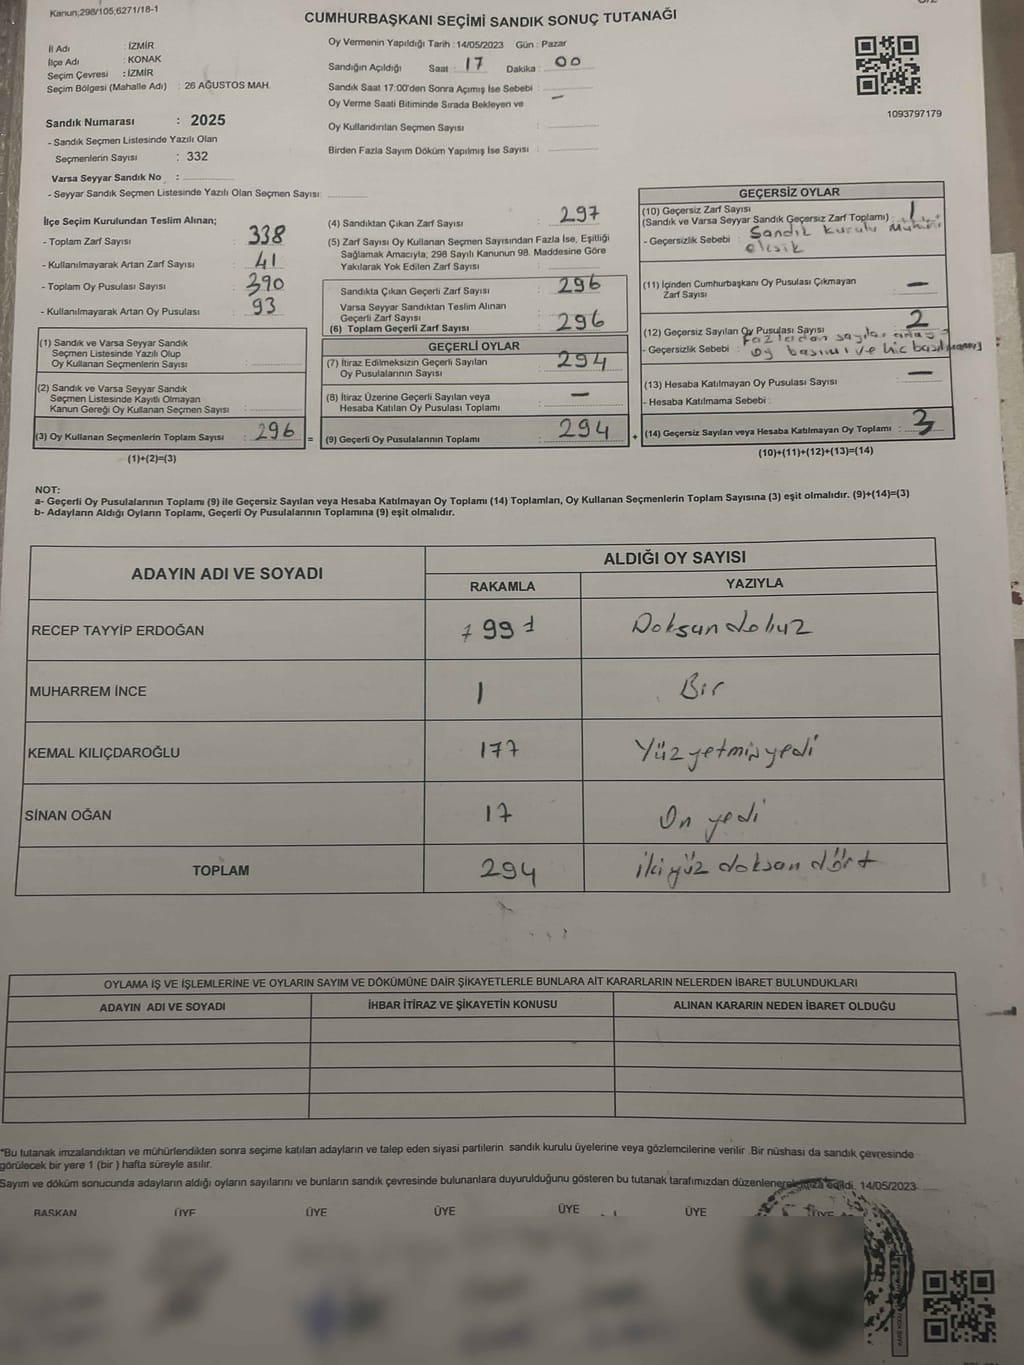 Kanun;298/105;6271/18-1
CUMHURBAŞKANI SEÇİMİ SANDIK SONUÇ TUTANAĞI
İl Adı : İZMİR
İlçe Adı : KONAK
Seçim Çevresi : İZMİR
Seçim Bölgesi (Mahalle Adı) : 26 AĞUSTOS MAH.
Sandık Numarası : 2025
- Sandık Seçmen Listesinde Yazılı Olan
Seçmenlerin Sayısı : 332
Varsa Seyyar Sandık No :
- Seyyar Sandık Seçmen Listesinde Yazılı Olan Seçmen Sayısı:
Oy Vermenin Yapıldığı Tarih : 14/05/2023 Gün : Pazar
Sandığın Açıldığı Saat : 17 Dakika : 00
Sandık Saat 17:00'den Sonra Açımış İse Sebebi :
Oy Verme Saati Bitiminde Sırada Bekleyen ve —
Oy Kullandırılan Seçmen Sayısı :
Birden Fazla Sayım Döküm Yapılmış İse Sayısı :
1093797179
İlçe Seçim Kurulundan Teslim Alınan;
- Toplam Zarf Sayısı : 338
- Kullanılmayarak Artan Zarf Sayısı : 41
- Toplam Oy Pusulası Sayısı : 390
- Kullanılmayarak Artan Oy Pusulası : 93
(1) Sandık ve Varsa Seyyar Sandık
Seçmen Listesinde Yazılı Olup
Oy Kullanan Seçmenlerin Sayısı :
(2) Sandık ve Varsa Seyyar Sandık
Seçmen Listesinde Kayıtlı Olmayan
Kanun Gereği Oy Kullanan Seçmen Sayısı :
(3) Oy Kullanan Seçmenlerin Toplam Sayısı : 296 =
(1)+(2)=(3)
(4) Sandıktan Çıkan Zarf Sayısı : 297
(5) Zarf Sayısı Oy Kullanan Seçmen Sayısından Fazla İse, Eşitliği
Sağlamak Amacıyla; 298 Sayılı Kanunun 98. Maddesine Göre
Yakılarak Yok Edilen Zarf Sayısı :
Sandıkta Çıkan Geçerli Zarf Sayısı : 296
Varsa Seyyar Sandıktan Teslim Alınan
Geçerli Zarf Sayısı :
(6) Toplam Geçerli Zarf Sayısı : 296
GEÇERLİ OYLAR
(7) İtiraz Edilmeksizin Geçerli Sayılan
Oy Pusulalarının Sayısı : 294
(8) İtiraz Üzerine Geçerli Sayılan veya
Hesaba Katılan Oy Pusulası Toplamı : —
(9) Geçerli Oy Pusulalarının Toplamı : 294 +
GEÇERSİZ OYLAR
(10) Geçersiz Zarf Sayısı
(Sandık ve Varsa Seyyar Sandık Geçersiz Zarf Toplamı) : 1
- Geçersizlik Sebebi : Sandık kurulu mührü
eksik
(11) İçinden Cumhurbaşkanı Oy Pusulası Çıkmayan
Zarf Sayısı : —
(12) Geçersiz Sayılan Oy Pusulası Sayısı : 2
- Geçersizlik Sebebi : Fazladan
oy basımı ve hiç basılmamış
(13) Hesaba Katılmayan Oy Pusulası Sayısı : —
- Hesaba Katılmama Sebebi :
(14) Geçersiz Sayılan veya Hesaba Katılmayan Oy Toplamı : 3
(10)+(11)+(12)+(13)=(14)
NOT:
a- Geçerli Oy Pusulalarının Toplamı (9) ile Geçersiz Sayılan veya Hesaba Katılmayan Oy Toplamı (14) Toplamları, Oy Kullanan Seçmenlerin Toplam Sayısına (3) eşit olmalıdır. (9)+(14)=(3)
b- Adayların Aldığı Oyların Toplamı, Geçerli Oy Pusulalarının Toplamına (9) eşit olmalıdır.
ADAYIN ADI VE SOYADI ALDIĞI OY SAYISI
RAKAMLA YAZIYLA
RECEP TAYYİP ERDOĞAN 99 Doksan dokuz
MUHARREM İNCE 1 Bir
KEMAL KILIÇDAROĞLU 177 Yüz yetmiş yedi
SİNAN OĞAN 17 On yedi
TOPLAM 294 iki yüz doksan dört
OYLAMA İŞ VE İŞLEMLERİNE VE OYLARIN SAYIM VE DÖKÜMÜNE DAİR ŞİKAYETLERLE BUNLARA AİT KARARLARIN NELERDEN İBARET BULUNDUKLARI
ADAYIN ADI VE SOYADI İHBAR İTİRAZ VE ŞİKAYETİN KONUSU ALINAN KARARIN NEDEN İBARET OLDUĞU
*Bu tutanak imzalandıktan ve mühürlendikten sonra seçime katılan adayların ve talep eden siyasi partilerin sandık kurulu üyelerine veya gözlemcilerine verilir .Bir nüshası da sandık çevresinde
görülecek bir yere 1 (bir ) hafta süreyle asılır.
Sayım ve döküm sonucunda adayların aldığı oyların sayılarını ve bunların sandık çevresinde bulunanlara duyurulduğunu gösteren bu tutanak tarafımızdan düzenlenerek imza edildi. 14/05/2023
BAŞKAN ÜYE ÜYE ÜYE ÜYE ÜYE ÜYE